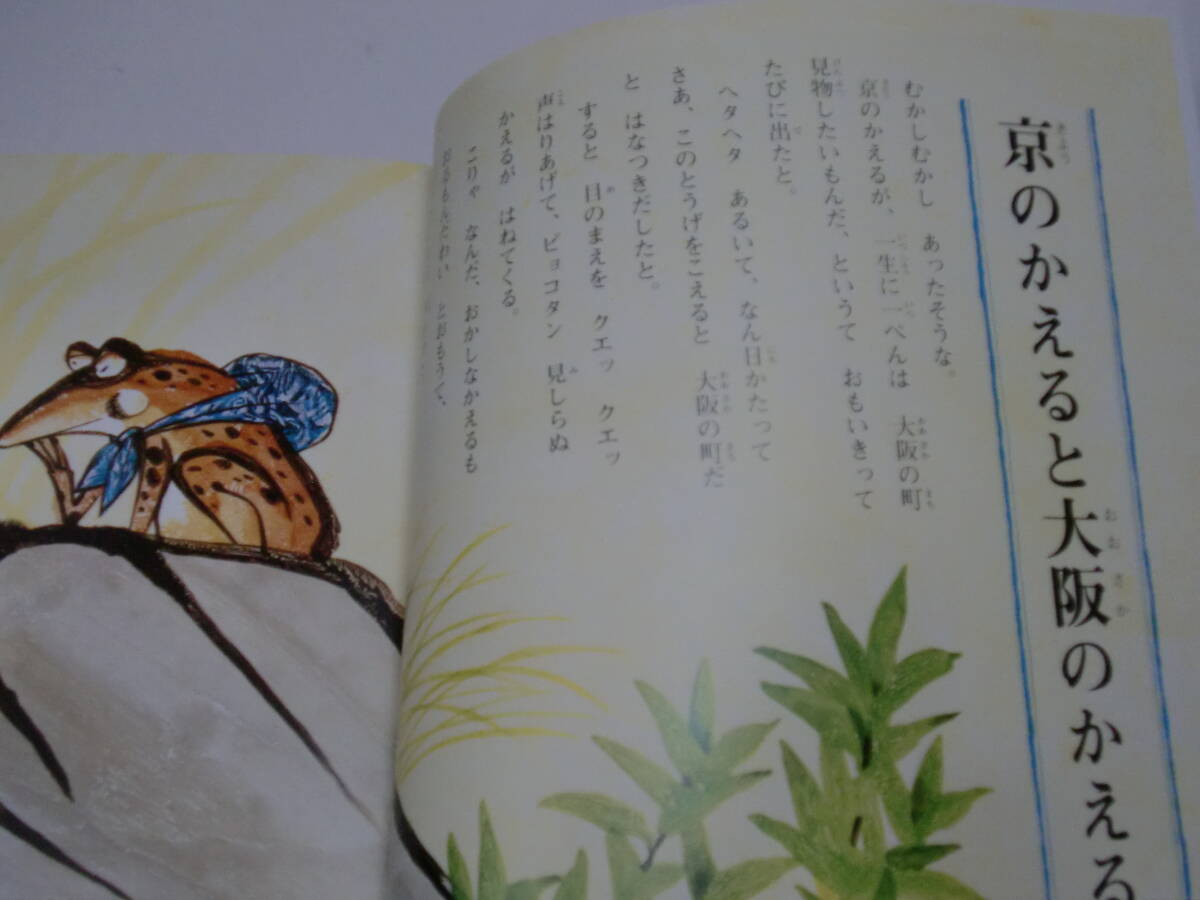 京のかえると大阪のかえる
むかしむかし あったそうな。
京のかえるが、一生に一ぺんは 大阪の町
見物したいもんだ、というて おもいきって
たびに出たと。
ヘタヘタ あるいて、なん日かたって
さあ、このとうげをこえると 大阪の町だ
と はなつきだしたと。
すると 目のまえを クエッ クエッ
声はりあげて、ピョコタン 見しらぬ
かえるが はねてくる。
こりゃ なんだ、おかしなかえるも
とおもうて、